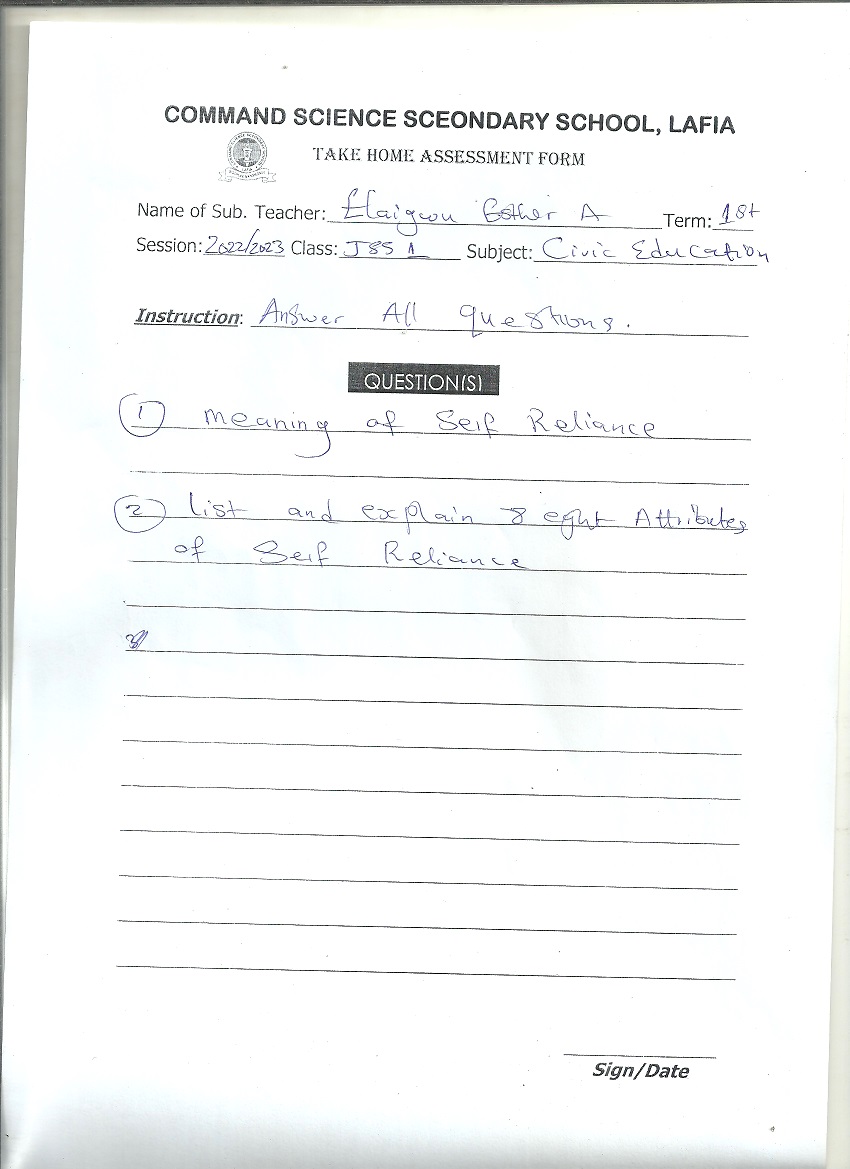 COMMAND SCIENCE SCEONDARY SCHOOL, LAFIA
TAKE HOME ASSESSMENT FORM
Name of Sub. Teacher: Elaigwu Esther A Term: 1st
Session: 2022/2023 Class: JSS 1 Subject: Civic Education
Instruction: Answer All questions.
QUESTION(S)
1 meaning of Self Reliance
2 list and explain 8 eght Attributes
of Self Reliance
Sign/Date